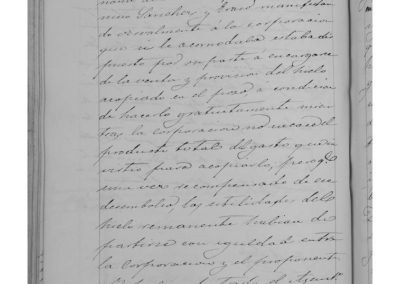 nino Sanchez y Erazo manifestan
do verbalmente á la corporacion
que si le acomodaba estaba dis
puesto por su parte á encargarse
de la venta y provision del hielo
acopiado en el pozo a condicion
de hacerlo gratuitamente mien
tras la corporacion no sacase el
producto total del gasto que in
virtio para acopiarlo, pero q.e
una vez recompensado de su
desembolso, las utilidades del
hielo remanente habian de
partirse con igualdad entre
la Corporacion y el proponente